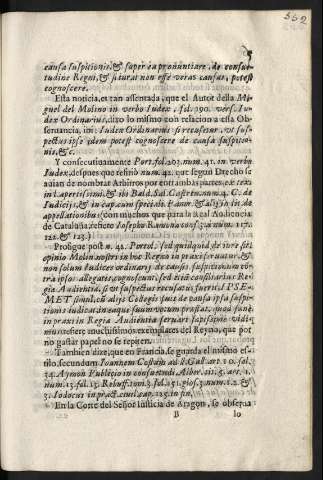 5
causa suspitionis, & super ea pronuntiare, de consue-
tudine Regni, & si iurat non esse veras causas, potest
cognoscere.
Esta noticia, es tan assentada, que el Autor della Mi-
guel del Molino in verbo Iudex, fol. 190. vers. Iu-
dex Ordinarius, dixo lo mismo con relacion a esta Ob-
seruancia, in: Iudex Ordinarius si recusetur, vt sus-
pectus ipse idem potest cognoscere de causa suspitio-
nis, &c.
Y consecutiuamente Port. fol. 203. num. 41. in verbo
Iudex, despues que refirió num. 42. que segun Drecho se
auian de nombrar Arbitros por entrambas partes ex text
in l. apertissimi, & ibi Bald. Sal. Castren. num. 4. C. de
Iudicijs, & in cap. cum speciali. Panor. & alij in tit. de
appellationibus (con muchos que para la Real Audiencia
de Cataluña, refiere Iosepho Ramona cons. 24. num. 117.
122. & 123.)
Prosigue post n. 42. Portol. sed quidquid de iure sit,
opinio Molin. nostri in hoc Regno in praxi seruatur, &
non solum Iudices ordinarij de causis suspitionum co-
tra ipsos allegatis, cognoscunt, sed etiã consiliarius Re-
gia Audientia, si vt suspectus recusatus fuerit, IPSE-
MET simul, cũ alijs Collegis suis de causa ipsa suspi-
tionis iudicat, in eaque suum votum præstat, quod sane
in praxi in Regia Audientia seruari sæpissimè vidi-
mus: refiere muchissimos exemplares del Reyno, que por
no gastar papel no se repiten.
Tambien dize, que en Francia se guarda el mismo es-
tilo, secundum Ioannem Costam ad l. Gall. arc. 20. fol.
34. Aymon Publicio in consuetud. Alber. tit. 5. art. 1.
num. 15. fol. 15. Rebuff. tom. 3. fol. 151. glos. 3. num. 12. &
3. Iodocus in pract. ciuil. cap. 125. in fin.
En la Corte del Señor Iusticia de Aragon, se obserua
B
lo